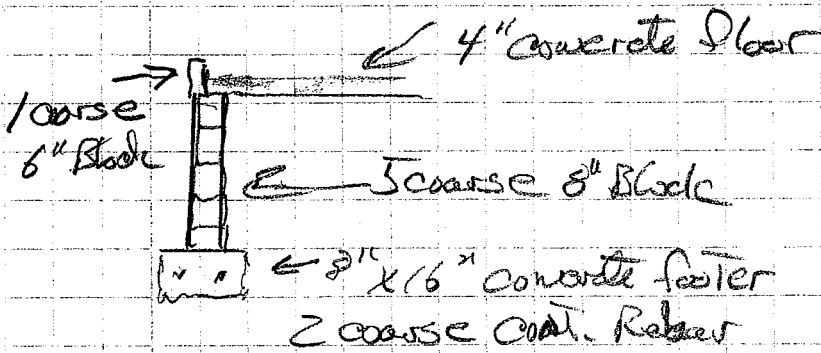 4" concrete floor
1 coarse
6" Block
5 coarse 8" Block
8" x 16" concrete footer
2 coarse cont. Rebar